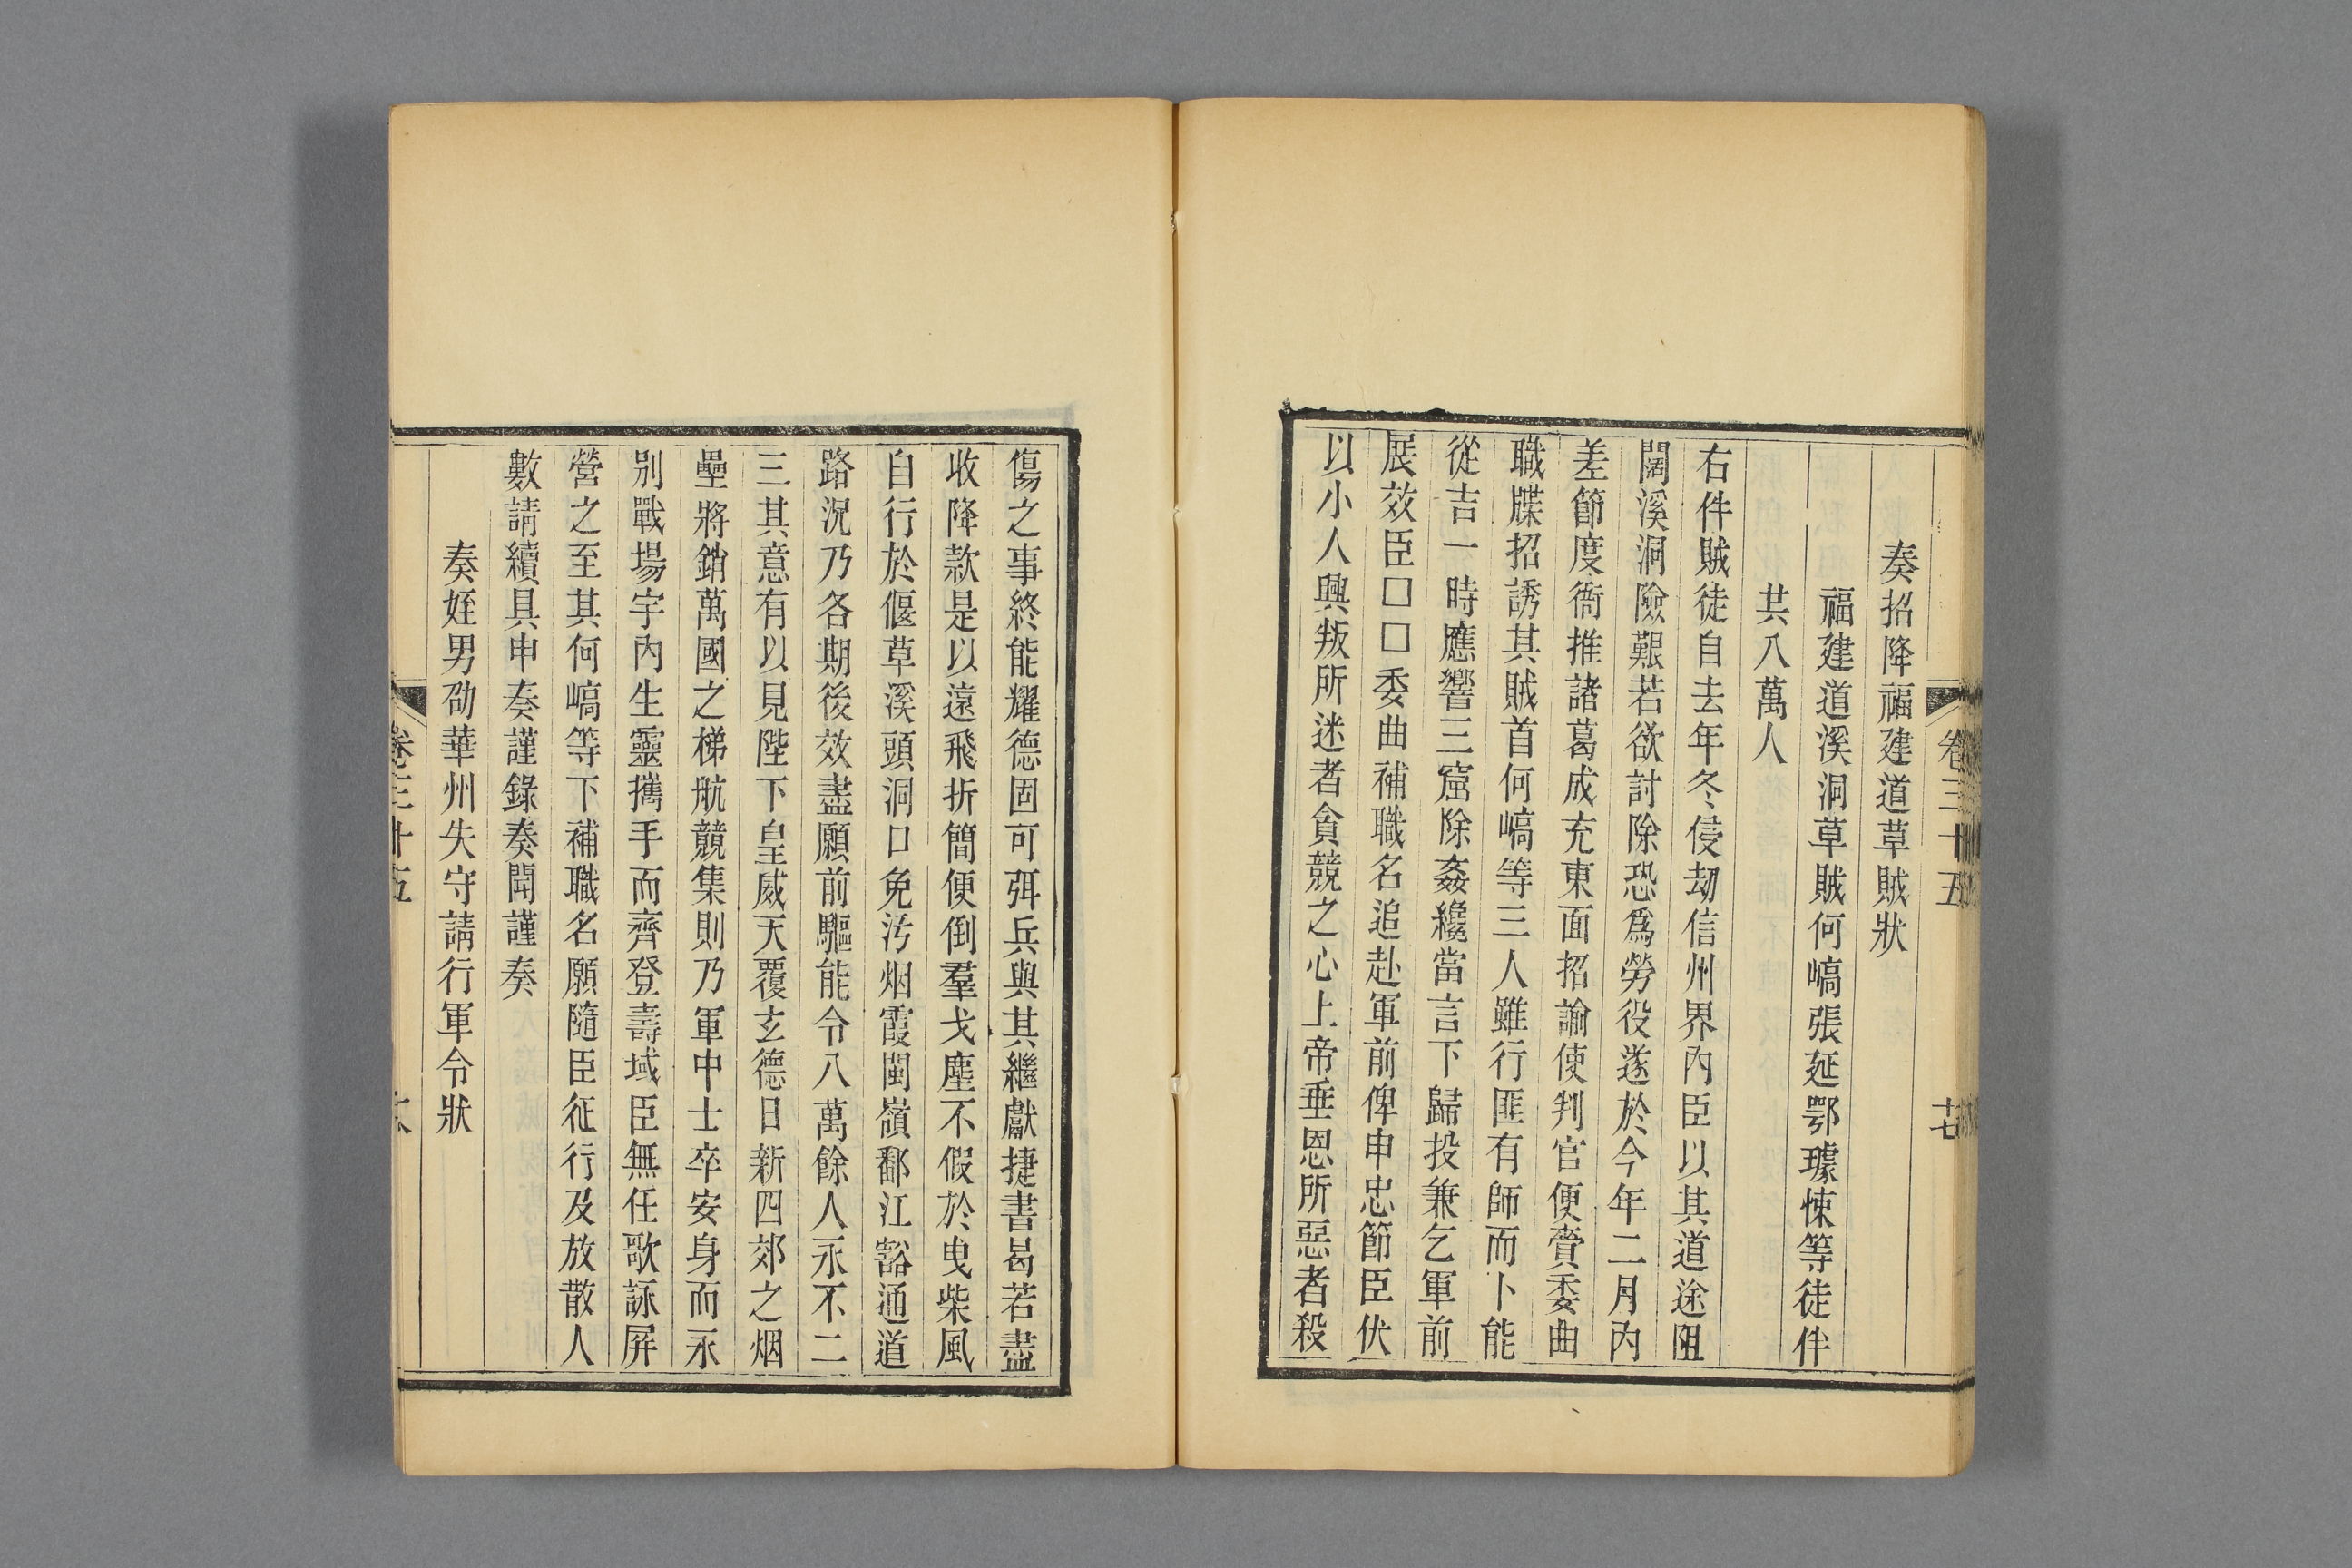 卷三十五
十七
奏招降福建道草賊狀
福建道溪洞草賊何嵪張延鄂璩悚等徒伴
共八萬人
右件賊徒自去年冬侵劫信州界內臣以其道途阻
闊溪洞險艱若欲討除恐爲勞役遂於今年二月內
差節度衙推諸葛成充東面招諭使判官便齎委曲
職牒招誘其賊首何嵪等三人雖行匪有師而卜能
從吉一時應響三窟除姦纔當言下歸投兼乞軍前
展效臣□□委曲補職名追赴軍前俾申忠節臣伏
以小人興叛所迷者貪競之心上帝垂恩所惡者殺
傷之事終能耀德固可弭兵與其繼獻捷書曷若盡
收降款是以遠飛折簡便倒羣戈塵不假於曳柴風
自行於偃草溪頭洞口免汚烟霞閩嶺鄱江豁通道
路況乃各期後效盡願前驅能令八萬餘人永不二
三其意有以見陛下皇威天覆玄德日新四郊之烟
壘將銷萬國之梯航競集則乃軍中士卒安身而永
別戰場宇內生靈攜手而齊登壽域臣無任歌詠屏
營之至其何嵪等下補職名願隨臣征行及放散人
數請續具申奏謹錄奏聞謹奏
奏姪男劭華州失守請行軍令狀
卷三十五